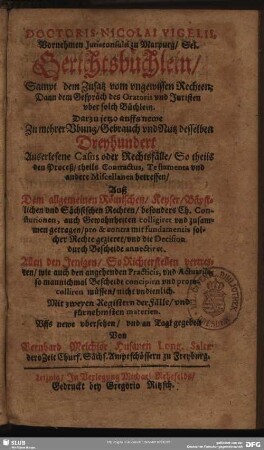 DOCTORIS NICOLAI VIGELII,
Vornehmen Jurisconsulti zu Marpurg/ Sel.
Gerichtsbüchlein/
Sampt dem Zusatz vom ungewissen Rechten/
Dann dem Gespräch des Oratoris und Juristen
uber solch Büchlein.
Darzu jetzo auffs newe
Zu mehrer Ubung/ Gebrauch und Nutz desselben
Dreyhundert
Auserlesene Casus oder Rechtsfälle/ So theils
den Proceß/ theils Contractus, Testamenta und
andere Miscellanea betreffen/
Auß
Dem allgemeinen Römischen/ Keyser/ Bäpst-
lichen und Sächsischen Rechten/ besonders Ch. Con-
stitutionen, auch Gewonheiten colligiret und zusam-
men getragen/ pro & contra mit fundamentis sol-
cher Rechte gezieret/ und die Decision
durch Bescheide
Allen den Jenigen/ So Richterstellen vertre-
ten/ wie auch den angehenden Practicis, und
so mannichmal Bescheide concipiren und
müssen/ nicht undienlich.
Mit zweyen Registern der Fälle/ und
fürnehmsten materien.
Uffs newe ubersehen/ und an Tag gegeben
Von
Bernhard Melchior Husanen
dero Zeit Churf. Sächs. Amptschössern zu Freyburg.
Leipzig/ In Verlegung Michael
Gedruckt bey Gregorio Ritzsch.
DFG